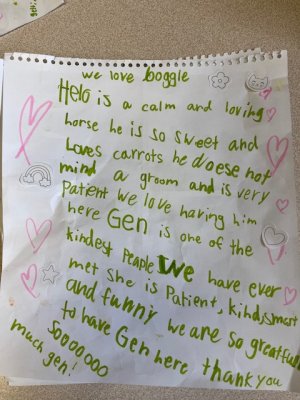 we love boggle
Helo is a calm and loving
horse he is so sweet and
Loves carrots he doese not
mind a groom and is very
Patient we love having him
here Gen is one of the
kindest People We have ever
met she is Patient, kind, smart
and funny we are so greatfull
to have Gen here thank you
Sooooooo
much gen!